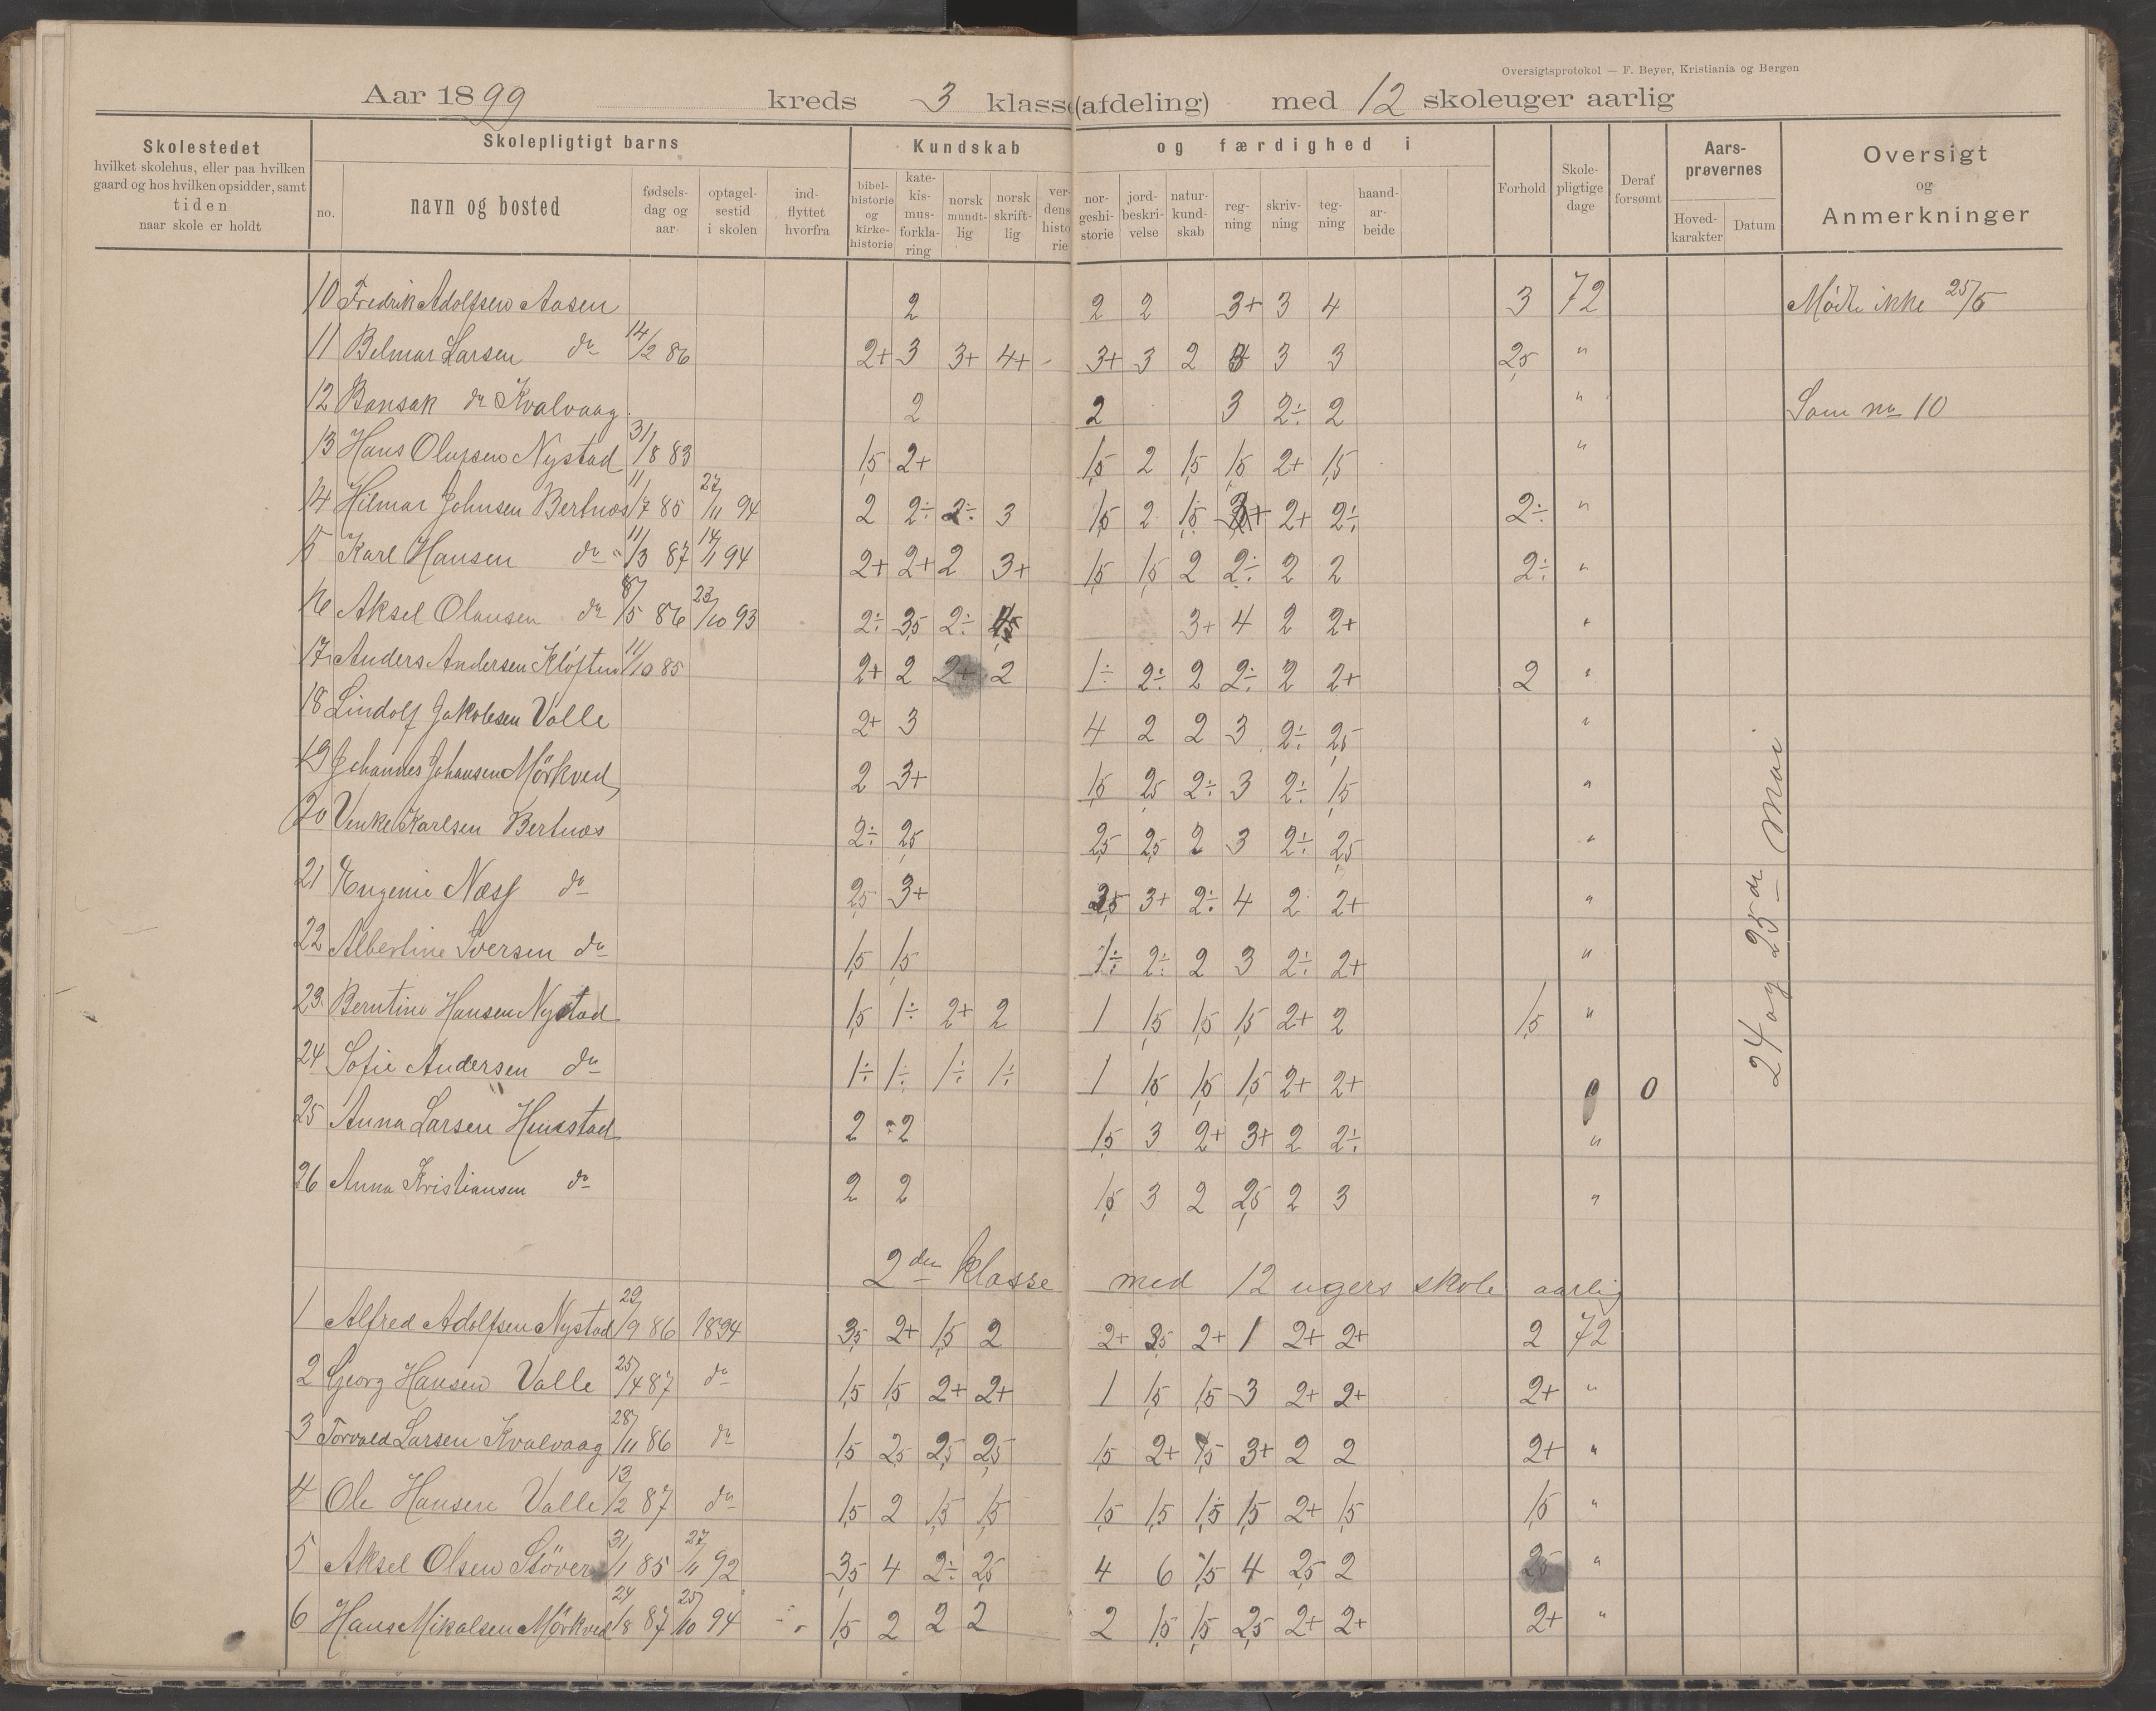 Oversigtsprotokol — F. Beyer, Kristiania og Bergen
Aar 1899 kreds 3 klasse (afdeling) med 12 skoleuger aarlig
Skolestedet
hvilket skolehus, eller paa hvilken
gaard og hos hvilken opsidder, samt
tiden
naar skole er holdt
Skolepligtigt barns
no.
navn og bosted
fødsels-
dag og
aar
optagel-
sestid
i skolen
ind-
flyttet
hvorfra
Kundskab og færdighed i
bibel-
historie
og
kirke-
historie
kate-
kis-
mus-
forkla-
ring
norsk
mundt-
lig
norsk
skrift-
lig
ver-
dens
histo
rie
nor-
geshi-
storie
jord-
beskri-
velse
natur-
kund-
skab
reg-
ning
skriv-
ning
teg-
ning
haand-
ar-
beide
Forhold
Skole-
pligtige
dage
Deraf
forsømt
Aars-
prøvernes
Hoved-
karakter
Datum
Oversigt
og
Anmerkninger
10 Fredrik Adolfsen Aasen 2 2 2 3+ 3 4 3 72 Mødte ikke 25/5
11 Belmar Larsen do 14/2 86 2+ 3 3+ 4+ - 3+ 3 2 3 3 2,5 "
12 Bansak do Kvalvaag 2 2 3 2÷ 2 " Som no 10
13 Hans Olufsen Nystad 31/8 83 1,5 2+ 1,5 2 1,5 1,5 2+ 1,5 "
14 Hilmar Johnsen Bertnæs 11/7 85 27/11 94 2 2÷ 2÷ 3 1,5 2 1,5 3+ 2+ 2÷ 2÷ "
15 Karl Hansen do 11/3 87 14/11 94 2+ 2+ 2 3+ 1,5 1,5 2 2÷ 2 2 2÷ "
16 Aksel Olausen do 8/5 86 23/10 93 2÷ 3,5 2÷ 3+ 4 2 2+ "
17 Anders Andersen Kløften 11/10 85 2+ 2 2+ 2 1÷ 2÷ 2 2÷ 2 2+ 2 "
18 Lindolf Jakobsen Valle 2+ 3 4 2 2 3 2÷ 2,5 "
19 Johannes Johansen Mörkved 2 3+ 1,5 2,5 2÷ 3 2÷ 1,5 "
20 Venke Karlsen Bertnæs 2÷ 2,5 2,5 2,5 2 3 2÷ 2,5 "
21 Eugenie Næss do 2,5 3+ 3,5 3+ 2÷ 4 2 2+ "
22 Albertine Iversen do 1,5 1,5 1÷ 2÷ 2 3 2÷ 2+ "
23 Berntine Hansen Nystad 1,5 1÷ 2+ 2 1 1,5 1,5 1,5 2+ 2 1,5 "
24 Sofie Andersen do 1÷ 1÷ 1÷ 1÷ 1 1,5 1,5 1,5 2+ 2+ 0
25 Anna Larsen Hunstad 2 2 1,5 3 2+ 3+ 2 2÷ "
26 Anna Kristiansen do 2 2 1,5 3 2 2,5 2 3 "
24 og 25de Mai
2den klasse med 12 ugers skole aarlig
1 Alfred Adolfsen Nystad 29/9 86 1894 3,5 2+ 1,5 2 2+ 2+ 1 2+ 2+ 2 72
2 Georg Hansen Valle 25/4 87 do 1,5 1,5 2+ 2+ 1 1,5 1,5 3 2+ 2+ 2+ "
3 Torvald Larsen Kvalvaag 28/11 86 do 1,5 2,5 2,5 2,5 1,5 2+ 1,5 3+ 2 2 2+ "
4 Ole Hansen Valle 13/2 87 do 1,5 2 1,5 1,5 1,5 1,5 1,5 1,5 2+ 1,5 1,5 "
5 Aksel Olsen Støver 31/1 85 27/11 92 3,5 4 2÷ 2,5 4 6 1,5 4 2,5 2 2,5 "
6 Hans Mikalsen Mörkved 24/8 87 25/10 94 1,5 2 2 2 2 1,5 1,5 2,5 2+ 2+ 2+ "